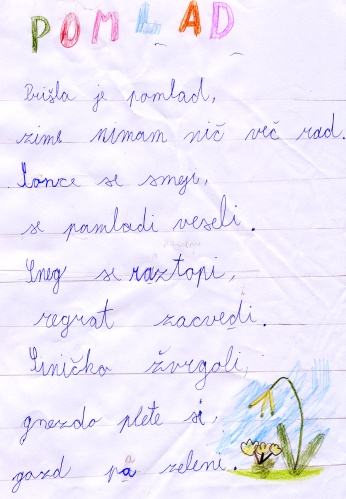 POMLAD
Prišla je pomlad,
zime nimam nič več rad.
Sonce se smeji,
se pamladi veseli.
Sneg se raztopi,
regrat zacvedi.
Sinička žvrgoli,
gnezdo plete si,
gozd pa zeleni.